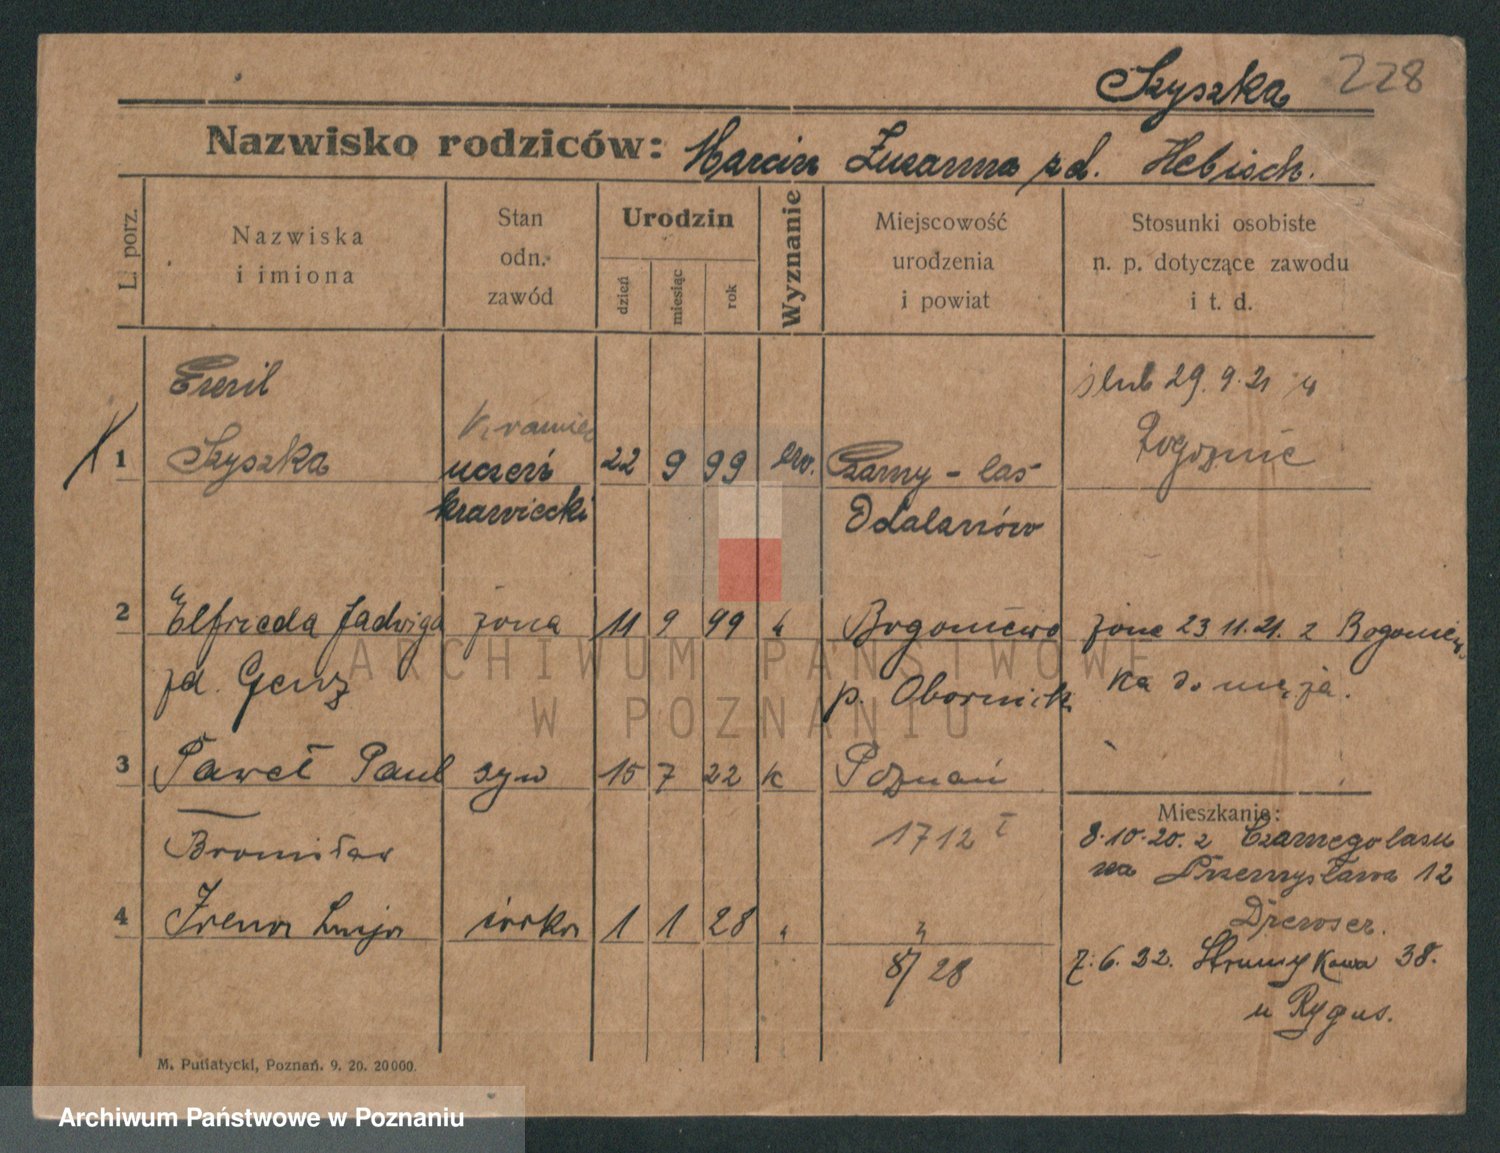 Szyszka 228
Nazwisko rodziców: Marcin Zuzanna zd. Hebisch.
L. porz.
Nazwiska
i imiona
Stan
odn.
zawód
Urodzin
dzień
miesiąc
rok
Wyznanie
Miejscowość
urodzenia
i powiat
Stosunki osobiste
n. p. dotyczące zawodu
i t. d.
Emil
ślub 29.9.21 w
Krawiec
1 Szyszka uczeń 22 9 99 ew. Czarny-las
krawiecki Odalanów
2 Elfrieda Jadwiga żona 11 9 99 Bogoniewo
zd. Genz p. Obornik
żona 23 11.21. z
ka do męża.
3 Paweł Paul syn 15 7 22 k Poznań
Bronisław
1712
4 Irena córka 1 1 28 "
8/28
Mieszkanie:
8.10.20. z Czarnegolasu
na Przemysława 12
7.6.22. Strumykowa 38.
u Rygus.
M. Putiatycki, Poznań. 9. 20. 20000.
ARCHIWUM PAŃSTWOWE
W POZNANIU
Archiwum Państwowe w Poznaniu